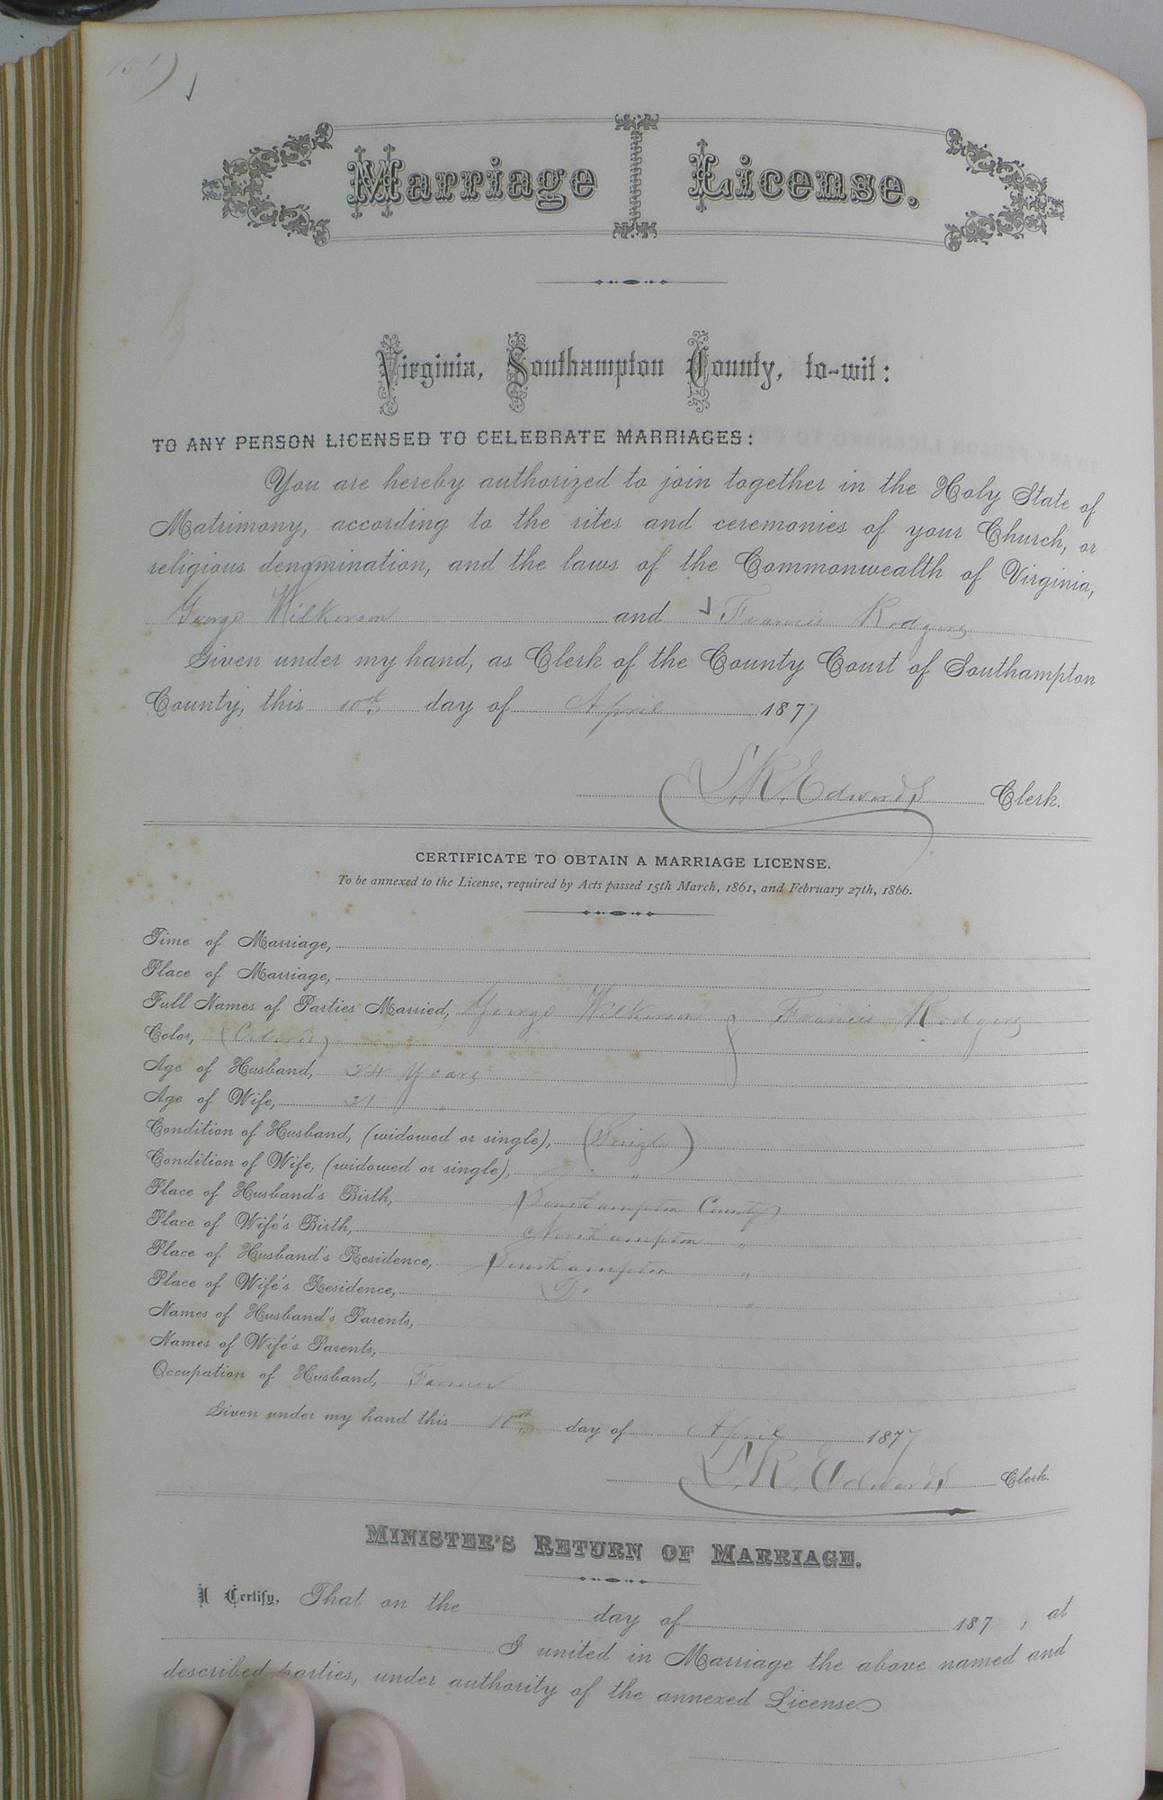 Marriage License.
Virginia, Southampton County, to-wit:
TO ANY PERSON LICENSED TO CELEBRATE MARRIAGES:
You are hereby authorized to join together in the Holy State of
Matrimony, according to the rites and ceremonies of your Church, or
religious denomination, and the laws of the Commonwealth of Virginia,
George Wilkerson and Francis Rodgers
Given under my hand, as Clerk of the County Court of Southampton
County, this 10th day of April 1877
L. R. Edwards Clerk.
CERTIFICATE TO OBTAIN A MARRIAGE LICENSE.
To be annexed to the License, required by Acts passed 15th March, 1861, and February 27th, 1866.
Time of Marriage,
Place of Marriage,
Full Names of Parties Married, George Wilkerson } Francis Rodgers
Color, (Colored)
Age of Husband, 24 Years
Age of Wife, 21 "
Condition of Husband, (widowed or single), (Singl)
Condition of Wife, (widowed or single), "
Place of Husband's Birth, Southampton County
Place of Wife's Birth, Northampton "
Place of Husband's Residence, Southampton "
Place of Wife's Residence, Do "
Names of Husband's Parents,
Names of Wife's Parents,
Occupation of Husband, Farmer
Given under my hand this 10th day of April 1877
L. R. Edwards Clerk.
MINISTER'S RETURN OF MARRIAGE.
I Certify, That on the day of 187 , at
I united in Marriage the above named and
described parties, under authority of the annexed License